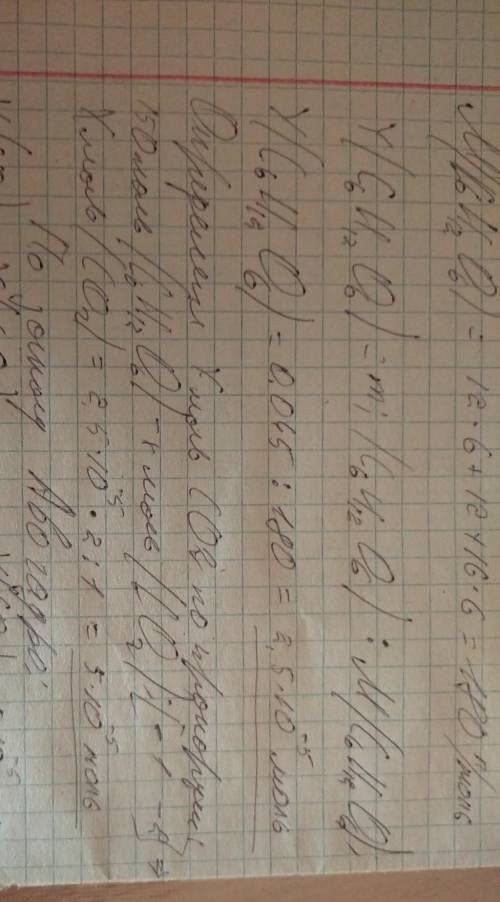 M(C₆H₁₂O₆) = 12·6+12+16·6 = 180 г/моль
Y(C₆H₁₂O₆) = m(C₆H₁₂O₆) : M(C₆H₁₂O₆)
Y(C₆H₁₂O₆) = 0,045 : 180 = 2,5·10⁻⁵ моль
Определяем Xмоль CO₂ по пропорции
моль C₆H₁₂O₆ - моль CO₂ 1 - 2 ⇒
Xмоль (CO₂) = 2,5·10⁻⁵ · 2 : 1 = 5·10⁻⁵ моль
По закону Авогадро: